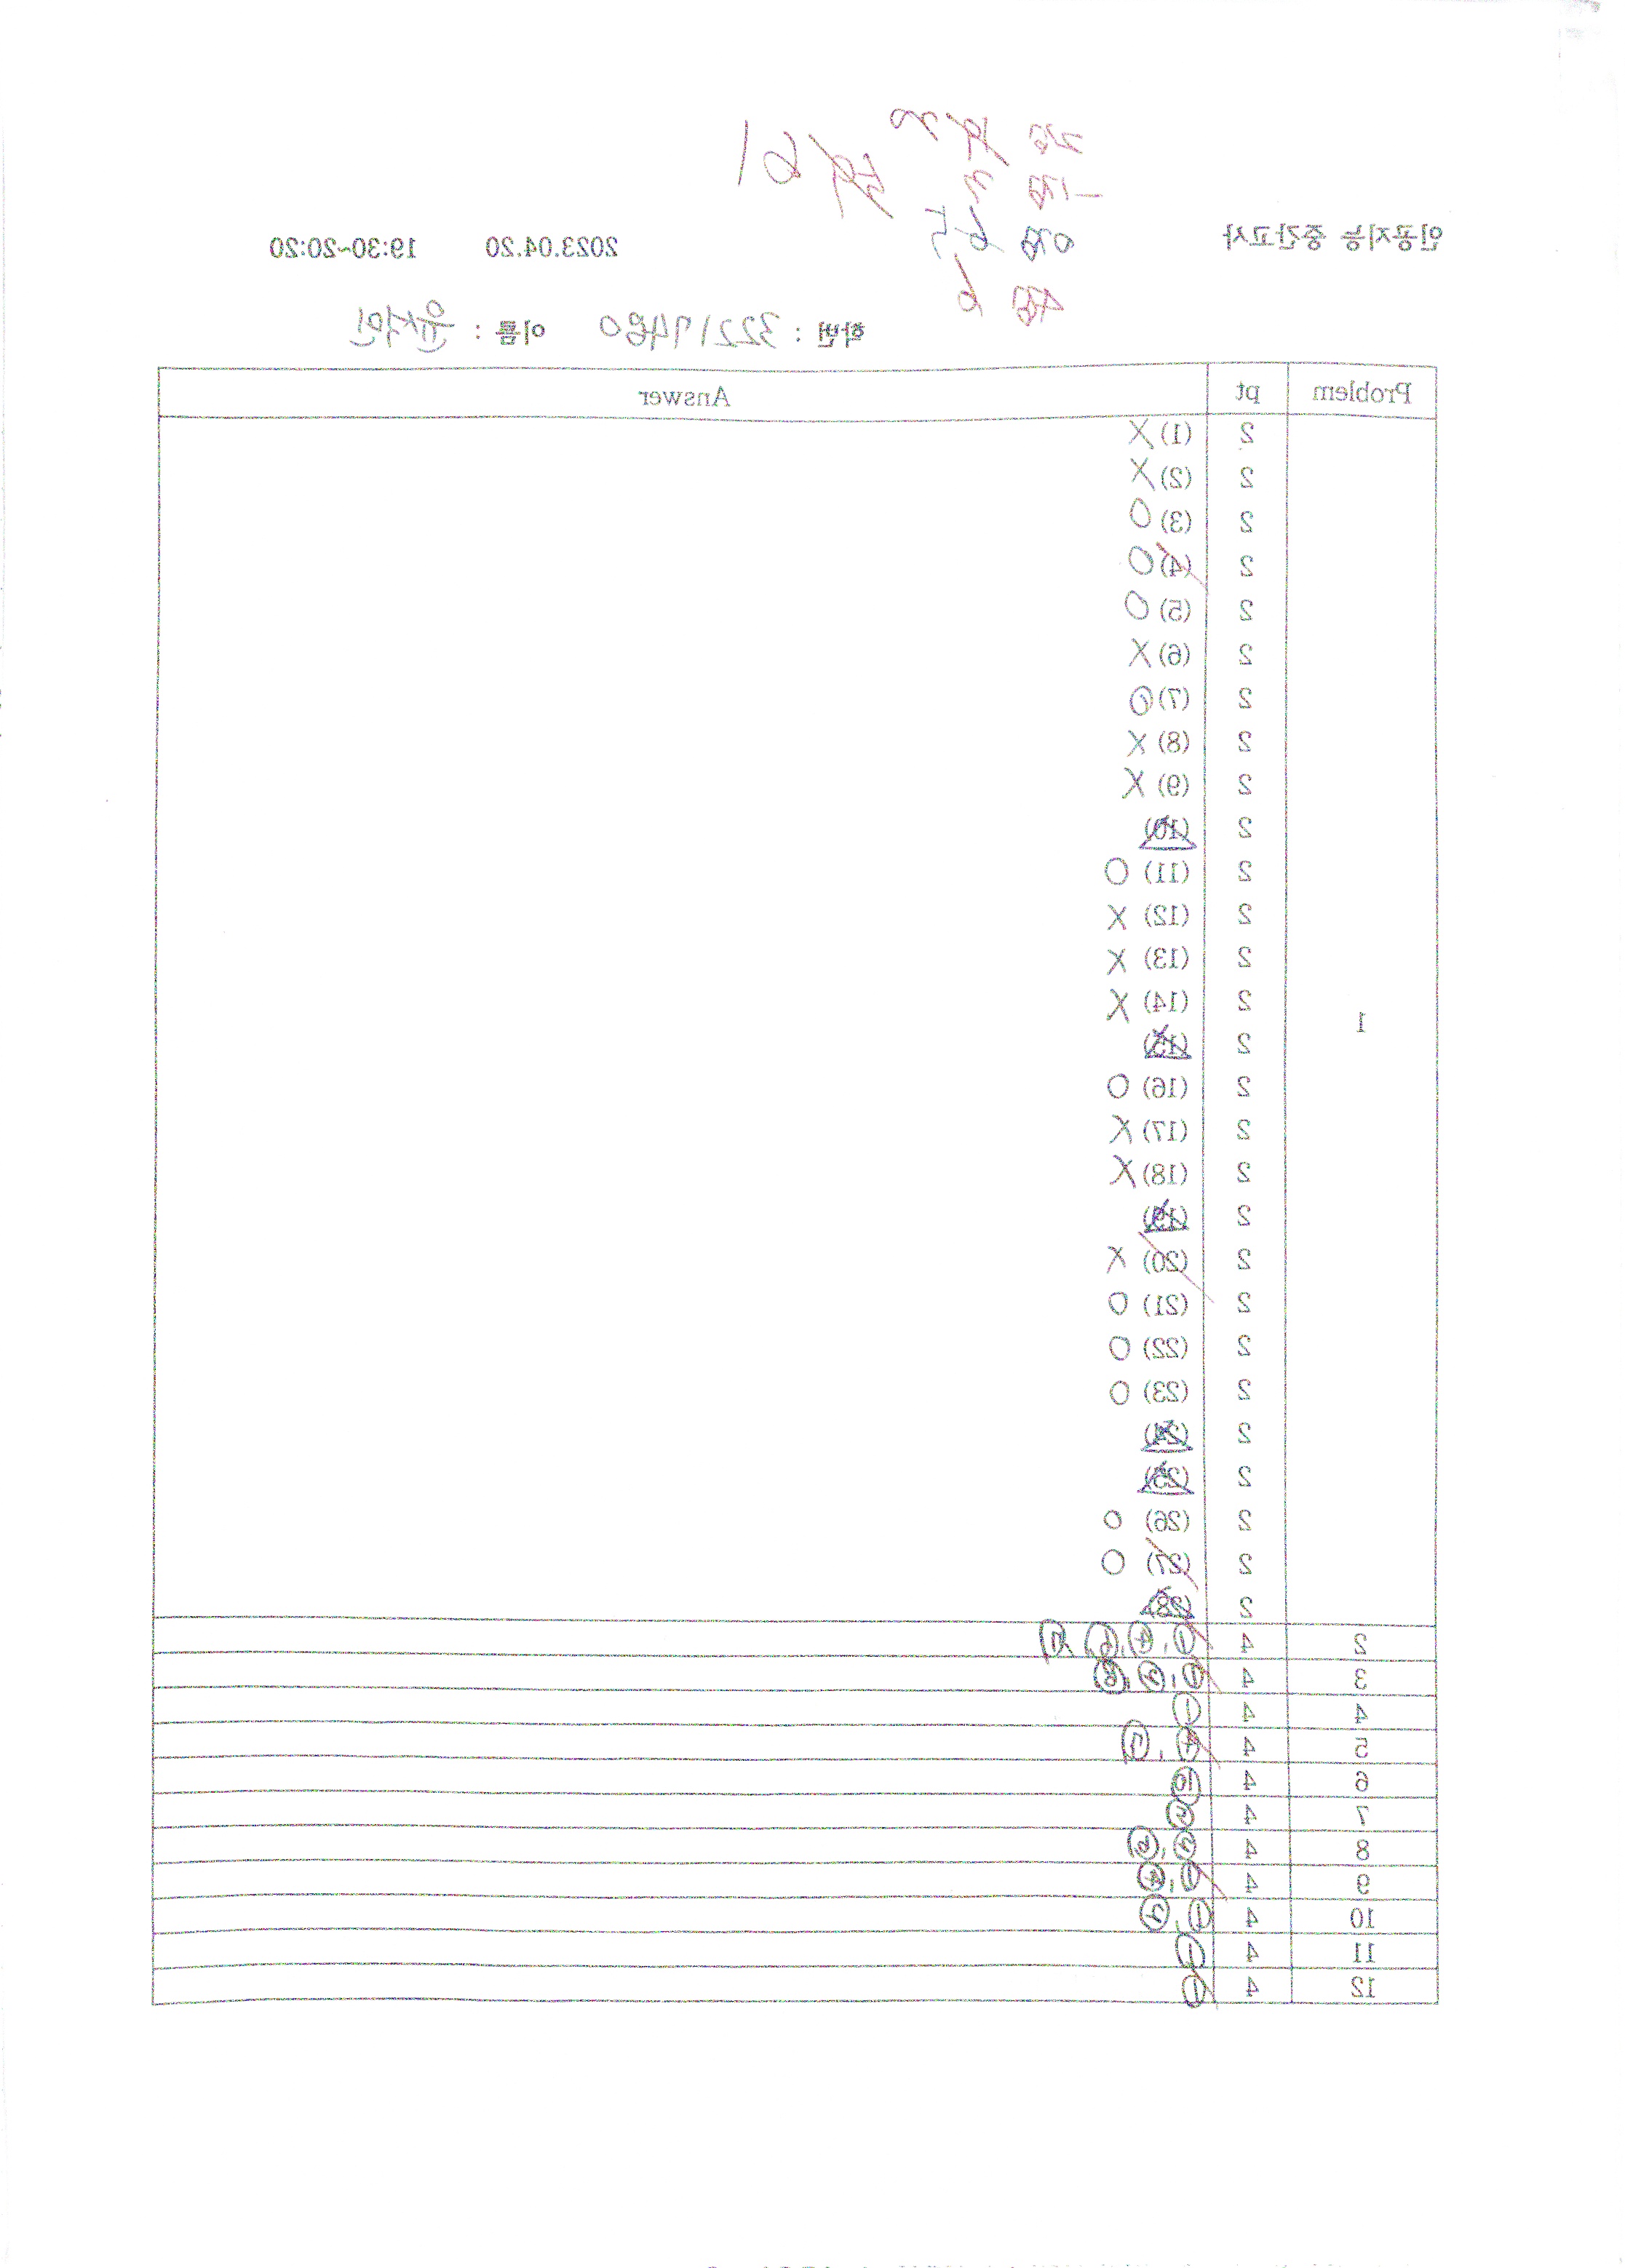 2점
-1점
0점
4점 6
61
인공지능 중간고사 2023.04.20 19:30~20:20
학번 : 32217480 이름 : 유석민
Problem pt Answer
1
2 (1) X
2 (2) X
2 (3) O
2 (4) O
2 (5) O
2 (6) X
2 (7) O
2 (8) X
2 (9) X
2 (10)
2 (11) O
2 (12) X
2 (13) X
2 (14) X
2 (15)
2 (16) O
2 (17) X
2 (18) X
2 (19)
2 (20) X
2 (21) O
2 (22) O
2 (23) O
2 (24)
2 (25)
2 (26) O
2 (27) O
2 (28)
2 4 ①, ④,
3 4
4 4 ①
5 4 ④,
6 4 ⑩
7 4
8 4
9 4 ①, ④
10 4 ①,
11 4 ①
12 4 ①